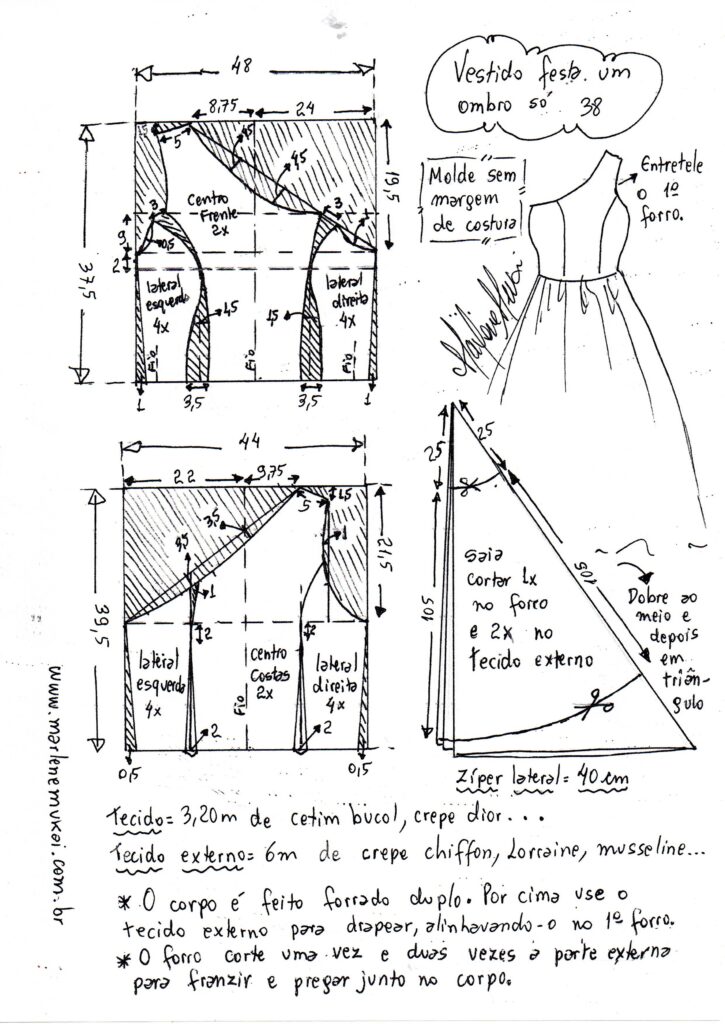 Vestido festa um
ombro só 38
Molde sem
margem
de costura
Entretele
o 1º
forro.
48
8,75
24
1,5
5
4,5
4,5
19,5
37,5
Centro
Frente
2x
3
3
1
9
0,5
2
lateral
esquerda
4x
1,5
1,5
lateral
direita
4x
Fio
Fio
Fio
1
3,5
3,5
1
44
22
9,75
5
1,5
3,5
1
21,5
39,5
1
2
2
lateral
esquerda
4x
Centro
Costas
2x
lateral
direita
4x
Fio
2
2
0,5
0,5
25
25
105
105
saia
cortar 1x
no forro
e 2x no
tecido externo
Dobre ao
meio e
depois
em
triân-
gulo
Zíper lateral = 40 cm
www.marlenemukai.com.br
Tecido = 3,20m de cetim bucol, crepe dior...
Tecido externo = 6m de crepe chiffon, Lorraine, musseline...
* O corpo é feito forrado duplo. Por cima use o
tecido externo para drapear, alinhavando-o no 1º forro.
* O forro corte uma vez e duas vezes a parte externa
para franzir e pregar junto no corpo.